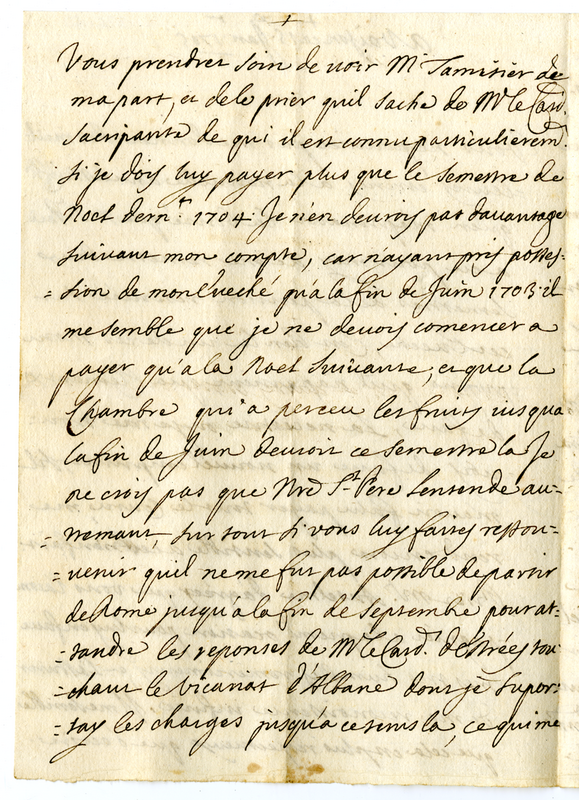 Vous prendrez soin de voir Mr Tamisier de
ma part, et de le prier qu'il sache de Mr le Card.
Sacripante de qui il est connu particulierem.t
si je dois luy payer plus que le semestre de
Noel dern.r 1704. Je n'en devrois pas davantage
suivant mon compte, car n'ayant pris posses-
=sion de mon Eveché qu'a la fin de Juin 1703 il
me semble que je ne devois comencer a
payer qu'a la Noel suivante, et que la
Chambre qui a perceu les fruits jusqua
la fin de Juin devroit ce semestre la Je
ne crois pas que Nre St Pere l'entende au-
=tremant, sur tout si vous luy faites ressou-
=venir quil ne me fut pas possible de partir
de Rome jusqu'a la fin de Septembre pour at-
=tandre les reponses de Mr le Card. d'Estrées tou
=chant le vicariat d'Albane dont je supor-
=tay les charges jusqu'a ce tems la, ce qui me